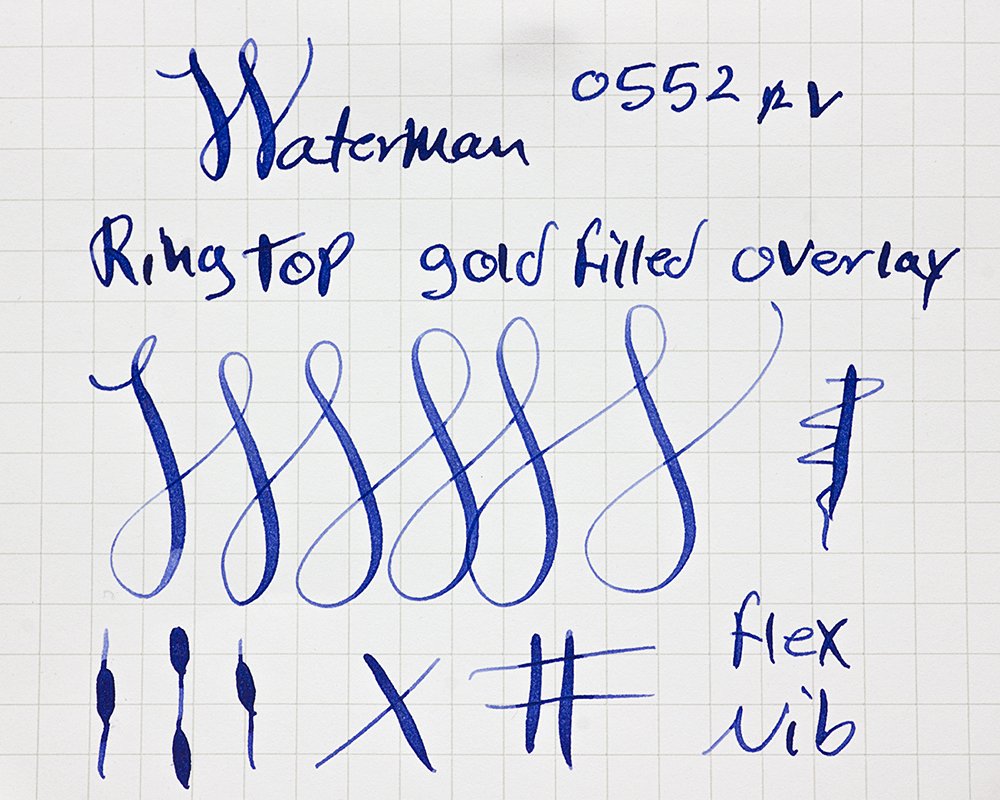 Waterman 0552 ½ V
Ringtop gold filled overlay
flex
nib